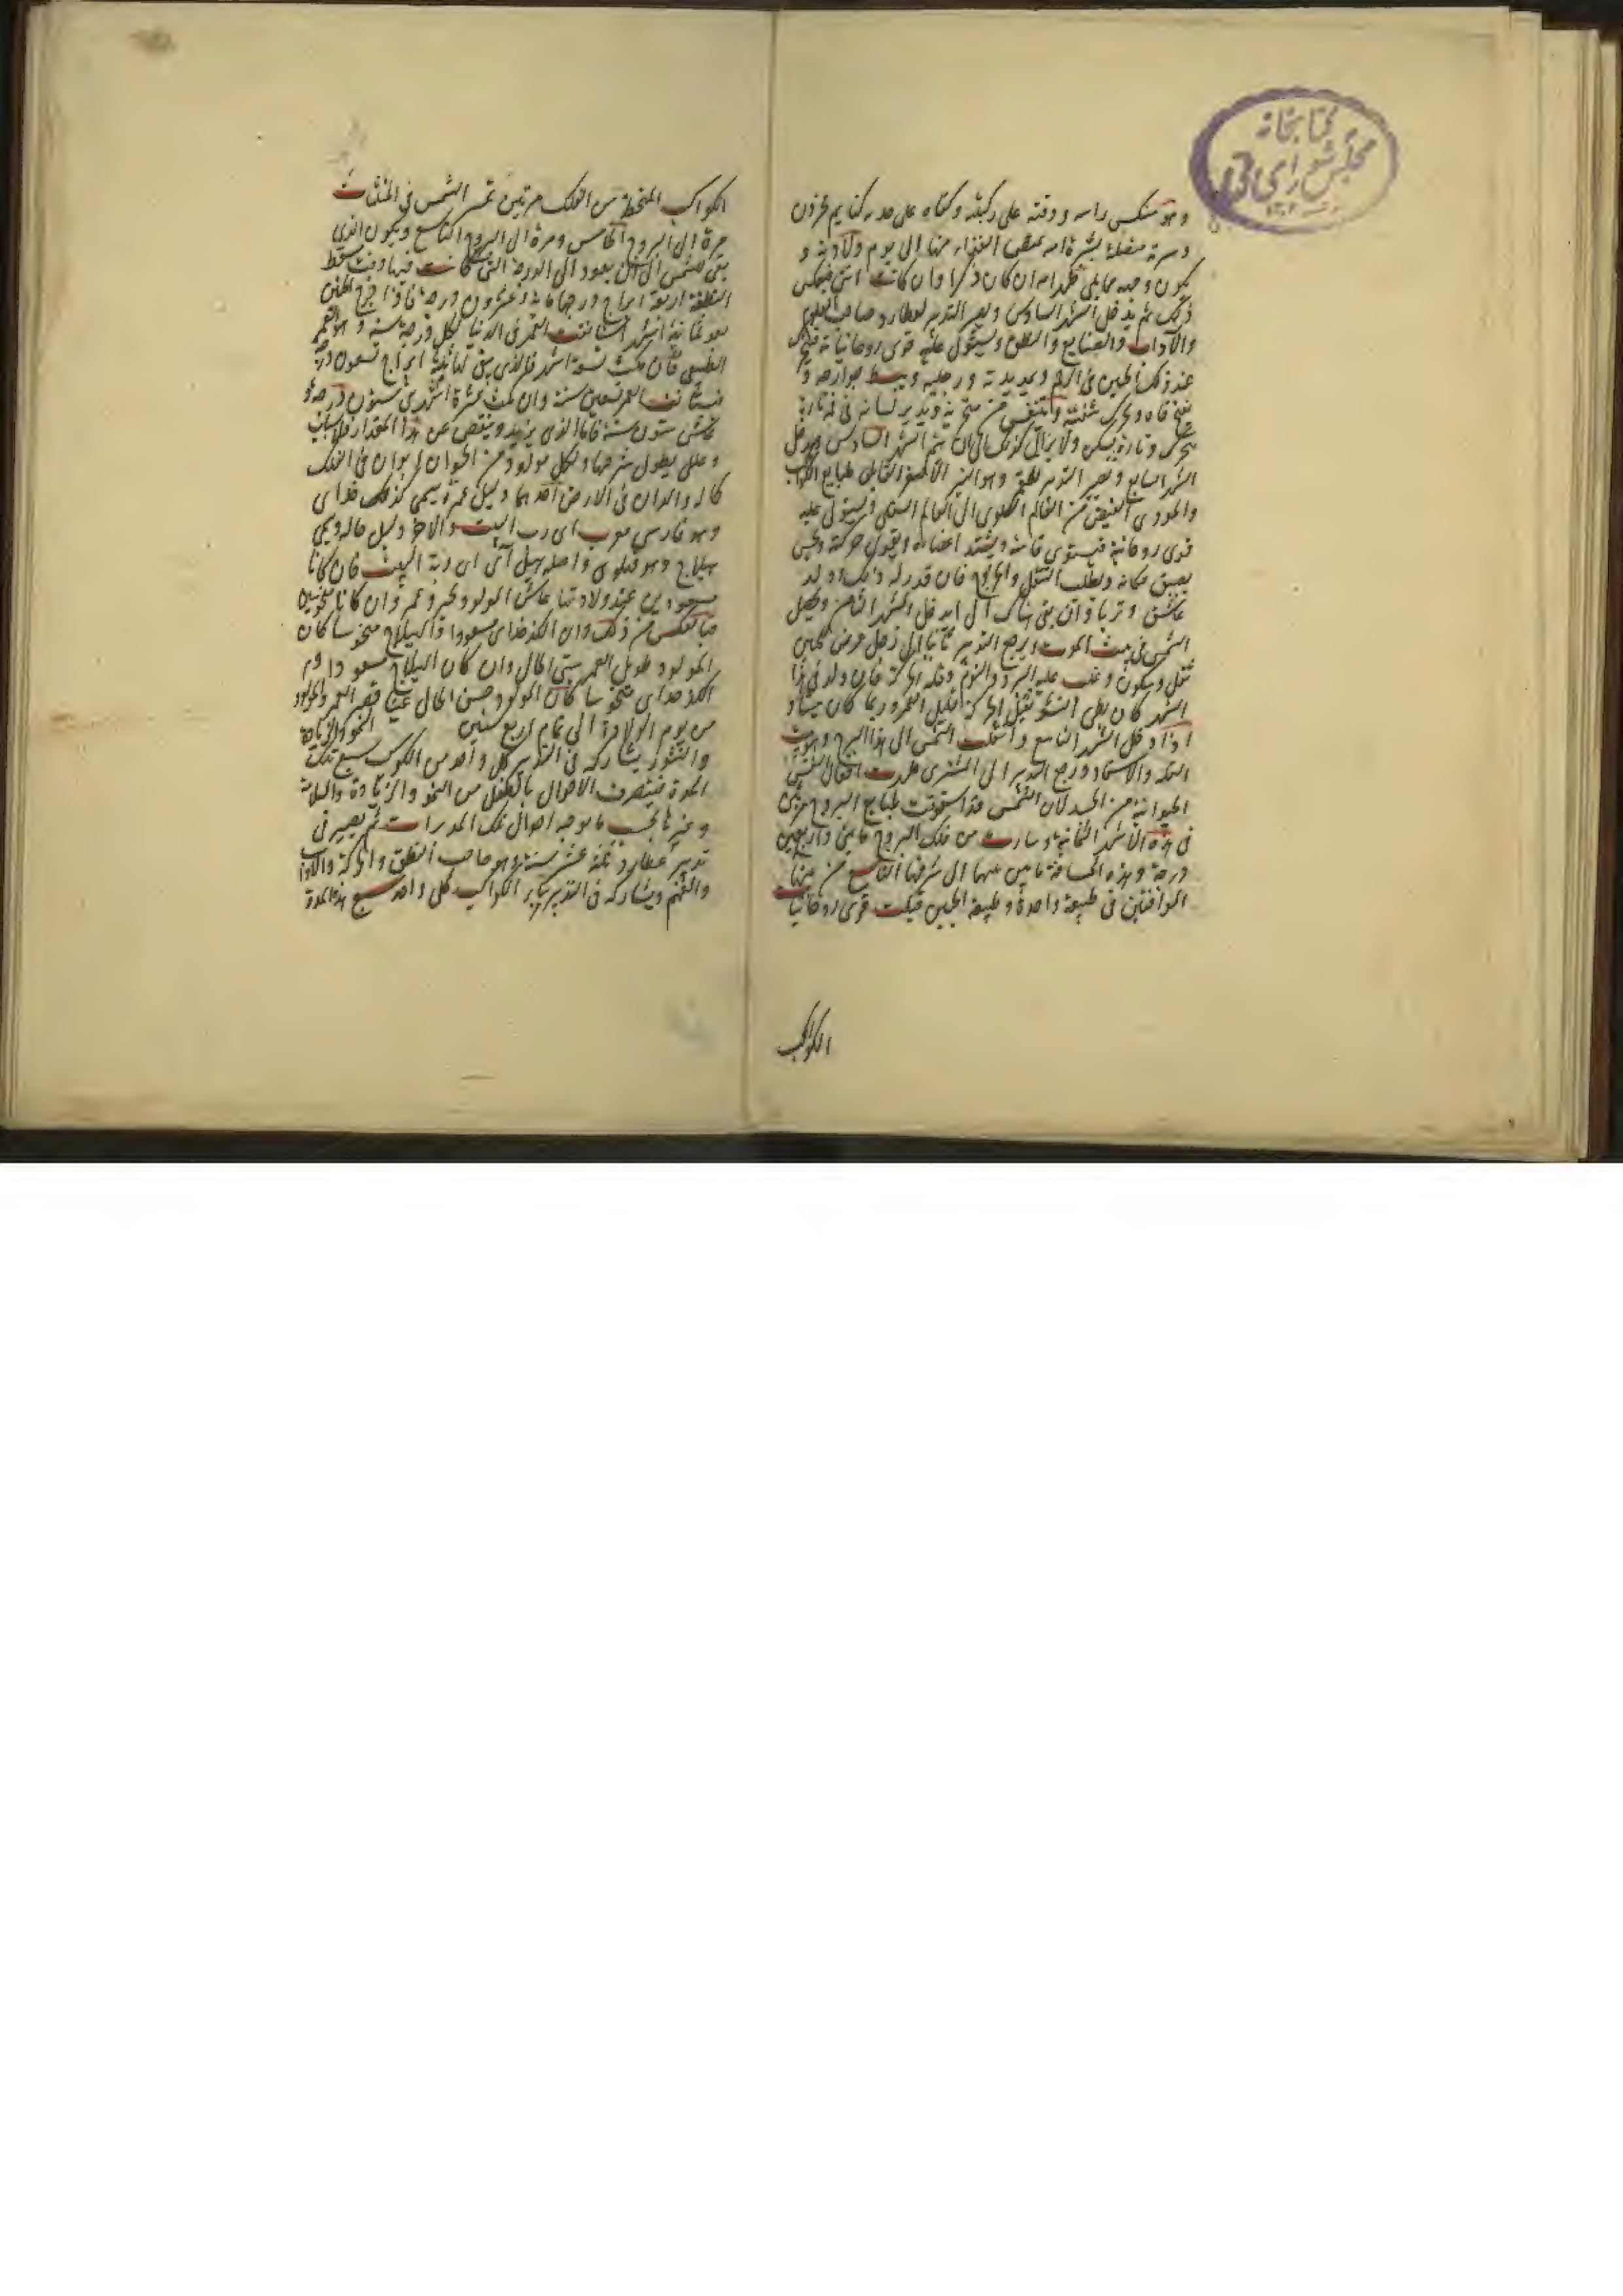 كتابخانه
مجلس شورای ملی
وهو منكس راسه ووقنه على ركبتيه وكفاه على خديه كنايم محزون
وسرته متصلة بسرة امه تمتص الغذاء منها الى يوم ولادته و
يكون وجهه مما يلي ظهر امه ان كان ذكرا وان كانت انثى فبعكس
ذلك ثم يدخل الشهر السادس ويصير التدبير لعطارد صاحب العلوم
والآداب والصنايع والنطق ويستولى عليه قوى روحانياته فيتحرك
عند ذلك الجنين فى الرحم ويمد يديه ورجليه ويبسط جوارحه و
يفتح فاه ويحرك شفتيه ويتنفس من منخريه ويدير لسانه فى فمه تارة
يتحرك وتارة يسكن ولا يزال كذلك الى ان يتم الشهر السادس ويدخل
الشهر السابع ويصير التدبير للقمر وهو النير الاصغر القابل طبايع الكواكب
والمؤدى الفيض من العالم العلوى الى العالم السفلى ويستولى عليه
قوى روحانية فيستوى قامته ويشتد اعضاؤه ويقوى حركته ويحس
بضيق مكانه ويطلب التنقل والخروج فان قدر له ذلك وولد
عاش وتربى وان بقى هناك الى ان دخل الشهر الثامن ويصل
الشمس فى بيت الموت ويرجع التدبير ثانيا الى زحل عرض للجنين
ثقل وسكون وغلب عليه البرد والنوم وقلة الحركة فان ولد فى هذا
الشهر كان بطى النشو ثقيل الحركة قليل العمر وربما كان ميتا و
اذا دخل الشهر التاسع وانتقلت الشمس الى هذا البرج وهو بيت
النقلة والاسفار ورجع التدبير الى المشترى ظهرت افعال النفس
الحيوانية من الجسد لان الشمس قد استوفت طبايع البروج مرتين
فى هذه الاشهر الثمانية وسارت من فلك البروج مائتين واربعين
درجة وهذه المسافة ما بين بيتها الى شرفها التاسع من بيتها
الموافقين فى طبيعة واحدة وطبيعة الجنين قبلت قوى روحانيات
الكواكب
الكواكب المنحطة من الفلك مرتين ثم الشمس فى المثلثات
مرة الى البروج الخامس ومرة الى البروج التاسع ويكون الذى
بقى للشمس الى ان يعود الى الدرجة التى كانت فيها وقت مسقط
النطفة اربعة ابراج ودرجها مائة وعشرون درجة فاذا خرج الجنين
بعد ثمانية اشهر استانفت العمر فى الدنيا لكل درجة سنة وهو العمر
الطبيعى فان مكث تسعة اشهر فالذى بقى لها ثلثة ابراج تسعون درجة
فيستانف العمر تسعين سنة وان مكث عشرة اشهر بقى ستون درجة و
عاش ستون سنة فاما الذى يزيد وينقص عن هذا المقدار فلاسباب
وعلل يطول شرحها ولكل مولود من الحيوان ابوان فى الفلك
كما له والدان فى الارض احدهما دليل عمره يسمى كذلك خداى
وهو فارسى معرب اى رب البيت والاخر دليل حاله ويسمى
هيلاج وهو فهلوى واصله هيل آنى اى ربة البيت فان كانا
مسعودين عند ولادتها عاش المولود بخير وعمر وان كانا منحوسين
فبالعكس من ذلك وان الكدخداى مسعودا والهيلاج منحوسا كان
المولود طويل العمر سيئ الحال وان كان الهيلاج مسعودا و
الكدخداى منحوسا كان المولود حسن الحال غنيا قصير العمر والمولود
من يوم الولادة الى تمام اربع سنين النمو والزيادة
والنشو ويشاركه فى التدبير كل واحد من الكواكب سبع تلك
المدة فيتصرف الاحوال بالطفل من النمو والزيادة والسلامة
وغيرها بحسب ما يوجبه احوال تلك المدبرات ثم يصير فى
تدبير عطارد تتمة عشر سنة وهو صاحب النطق والحركة والآداب
والفهم ويشاركه فى التدبير ساير الكواكب كل واحد سبع هذا المدة